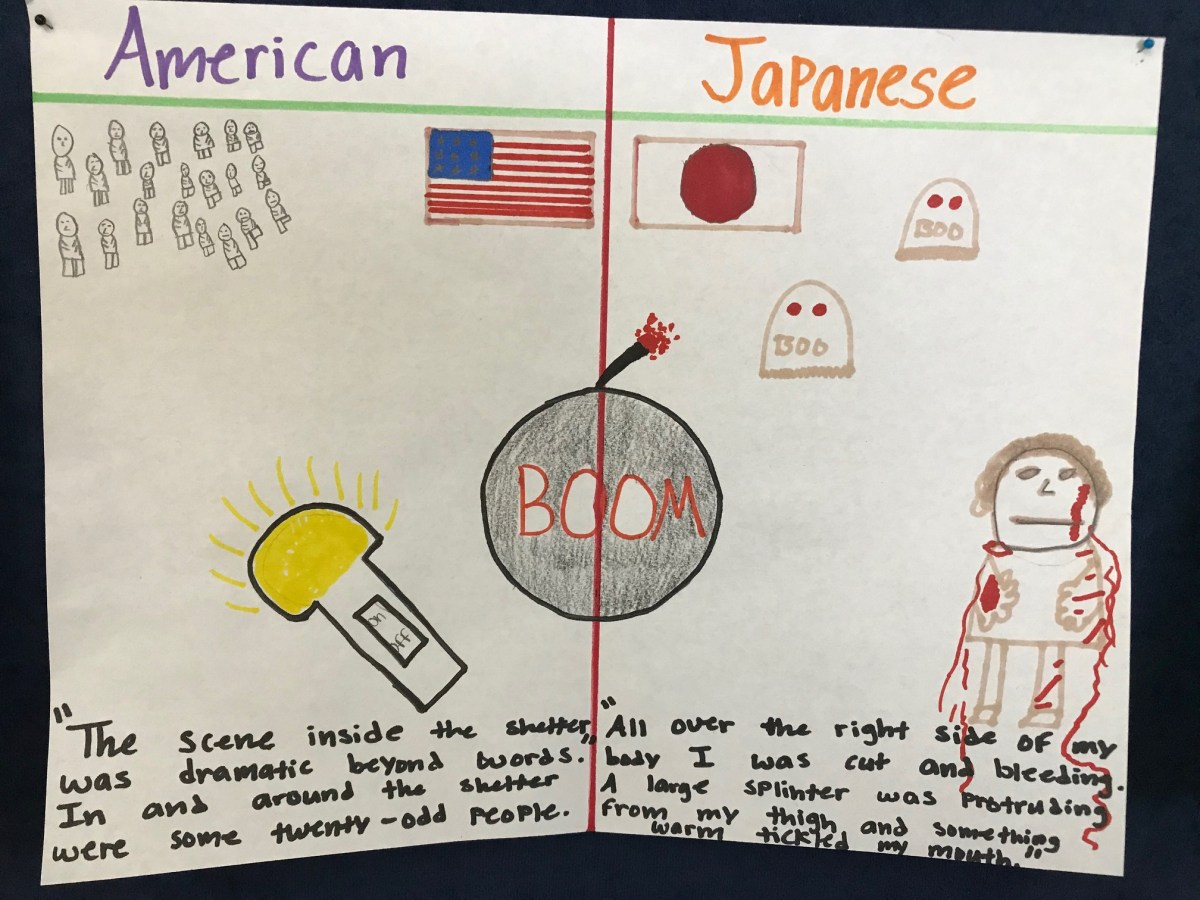 American
Japanese
BOO
BOO
BOOM
On
Off
"The scene inside the shelter
was dramatic beyond words."
In and around the shelter
were some twenty-odd people.
"All over the right side of my
body I was cut and bleeding.
A large splinter was protruding
from my thigh and something
warm tickled my mouth."